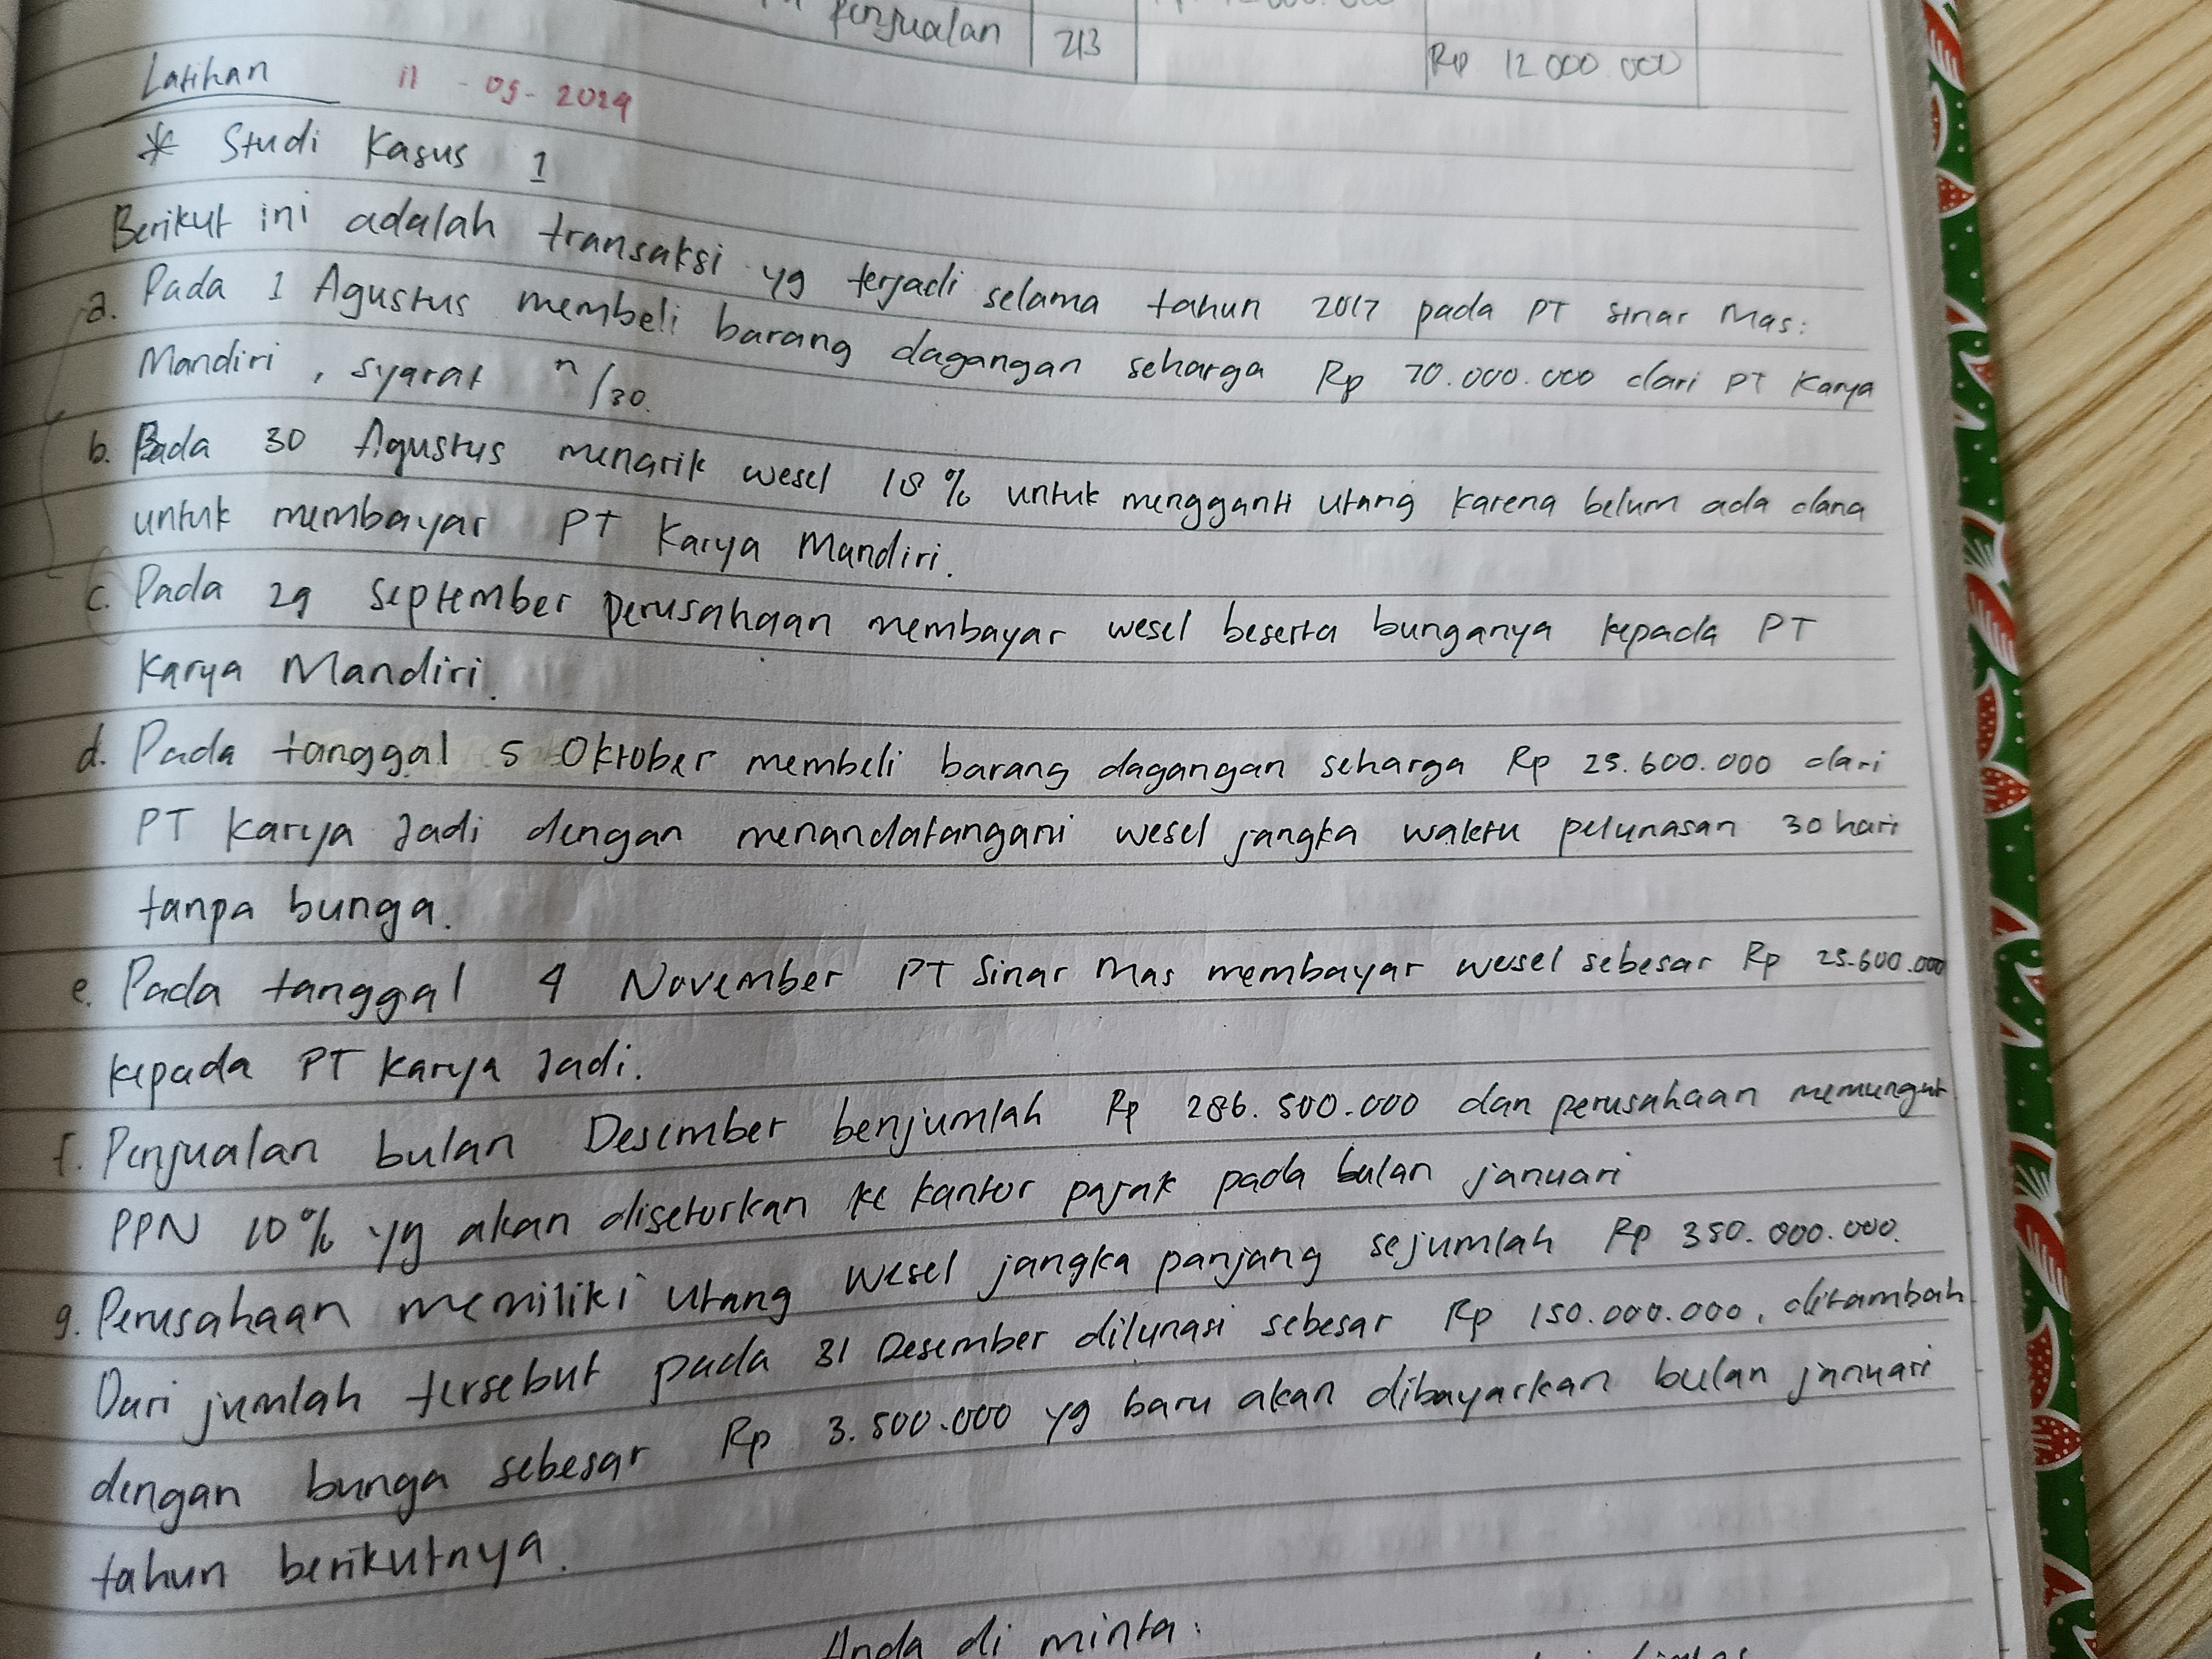 penjualan 213
Rp 12 000 000
Latihan 11 - 05 - 2024
* Studi Kasus 1
Berikut ini adalah transaksi yg terjadi selama tahun 2017 pada PT Sinar Mas:
a. Pada 1 Agustus membeli barang dagangan seharga Rp 70.000.000 dari PT Karya
Mandiri, syarat n/30.
b. Pada 30 Agustus menarik wesel 18% untuk mengganti utang karena belum ada dana
untuk membayar PT Karya Mandiri.
c. Pada 29 September perusahaan membayar wesel beserta bunganya kepada PT
Karya Mandiri.
d. Pada tanggal 5 Oktober membeli barang dagangan seharga Rp 25.600.000 dari
PT Karya Jadi dengan menandatangani wesel jangka waktu pelunasan 30 hari
tanpa bunga.
e. Pada tanggal 4 November PT Sinar Mas membayar wesel sebesar Rp 25.600.000
kepada PT Karya Jadi.
f. Penjualan bulan Desember benjumlah Rp 286.500.000 dan perusahaan memungut
PPN 10% yg akan disetorkan ke kantor pajak pada bulan januari
g. Perusahaan memiliki utang wesel jangka panjang sejumlah Rp 350.000.000.
Dari jumlah tersebut pada 31 Desember dilunasi sebesar Rp 150.000.000, ditambah
dengan bunga sebesar Rp 3.500.000 yg baru akan dibayarkan bulan januari
tahun berikutnya.
Anda di minta: